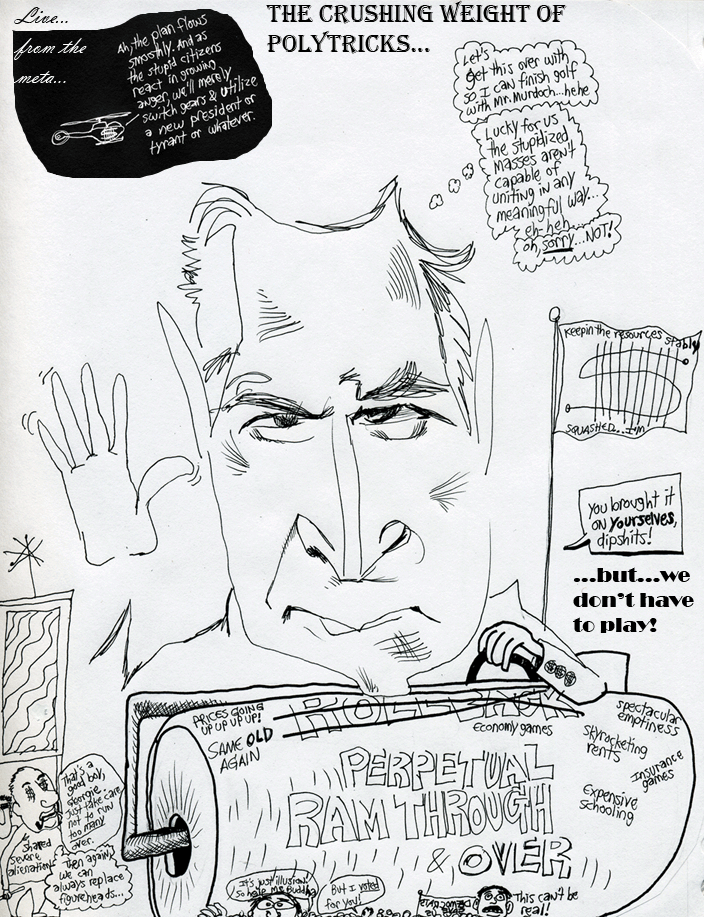 Live...
from the
meta...
THE CRUSHING WEIGHT OF
POLYTRICKS...
Ah, the plan flows
smoothly. And as
the stupid citizens
react in growing
anger, we'll merely
switch gears & utilize
a new president or
tyrant or whatever.
Let's
get this over with
so I can finish golf
with Mr. Murdoch...hehe
Lucky for us
the stupidized
masses aren't
capable of
uniting in any
meaningful way...
eh-heh
oh, sorry...NOT!
Keepin the resources stably
SQUASHED...I'M
you brought it
ON YOURSELVES,
dipshits!
...but...we
don't have
to play!
$$$
PRICES GOING
UP UP UP UP!
SAME OLD
AGAIN
ROLLBACK
economy games
spectacular
emptiness
skyrocketing
rents
Insurance
games
Expensive
schooling
PERPETUAL
RAM THROUGH
& OVER
That's a
good boy,
Georgie
just take care
not to run
too many
over.
Then again,
we can
always replace
figureheads...
shared
severe
alienation
It's just illusion!
So hate me, Buddha
But I voted
for you!
This can't be
real!